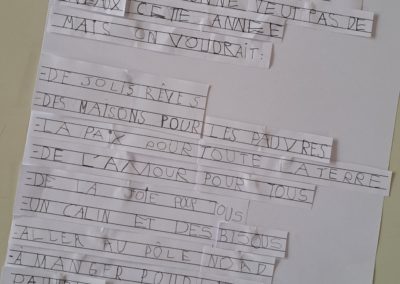 VEUT PAS DE
CETTE ANNÉE
MAIS ON VOUDRAIT:
-DE JOLIS RÊVES
-DES MAISONS POUR LES PAUVRES
-LA PAIX POUR TOUTE LA TERRE
-DE L'AMOUR POUR TOUS
-DE LA JOIE POUR TOUS
-UN CALIN ET DES BISOUS
-ALLER AU PÔLE NORD
-A MANGER POUR